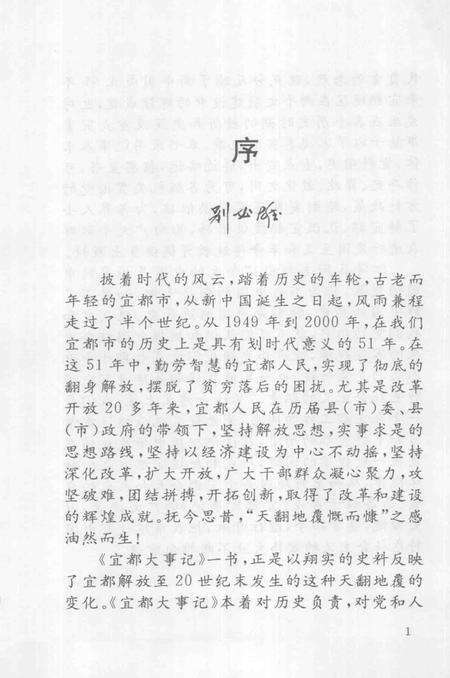 序
别必雄
披着时代的风云，踏着历史的车轮，古老而
年轻的宜都市，从新中国诞生之日起，风雨兼程
走过了半个世纪。从 1949 年到 2000 年，在我们
宜都市的历史上是具有划时代意义的 51 年。在
这 51 年中，勤劳智慧的宜都人民，实现了彻底的
翻身解放，摆脱了贫穷落后的困扰。尤其是改革
开放 20 多年来，宜都人民在历届县(市)委、县
(市)政府的带领下，坚持解放思想，实事求是的
思想路线，坚持以经济建设为中心不动摇，坚持
深化改革，扩大开放，广大干部群众凝心聚力，攻
坚破难，团结拼搏，开拓创新，取得了改革和建设
的辉煌成就。抚今思昔，“天翻地覆慨而慷”之感
油然而生！
《宜都大事记》一书，正是以翔实的史料反映
了宜都解放至 20 世纪末发生的这种天翻地覆的
变化。《宜都大事记》本着对历史负责，对党和人
1